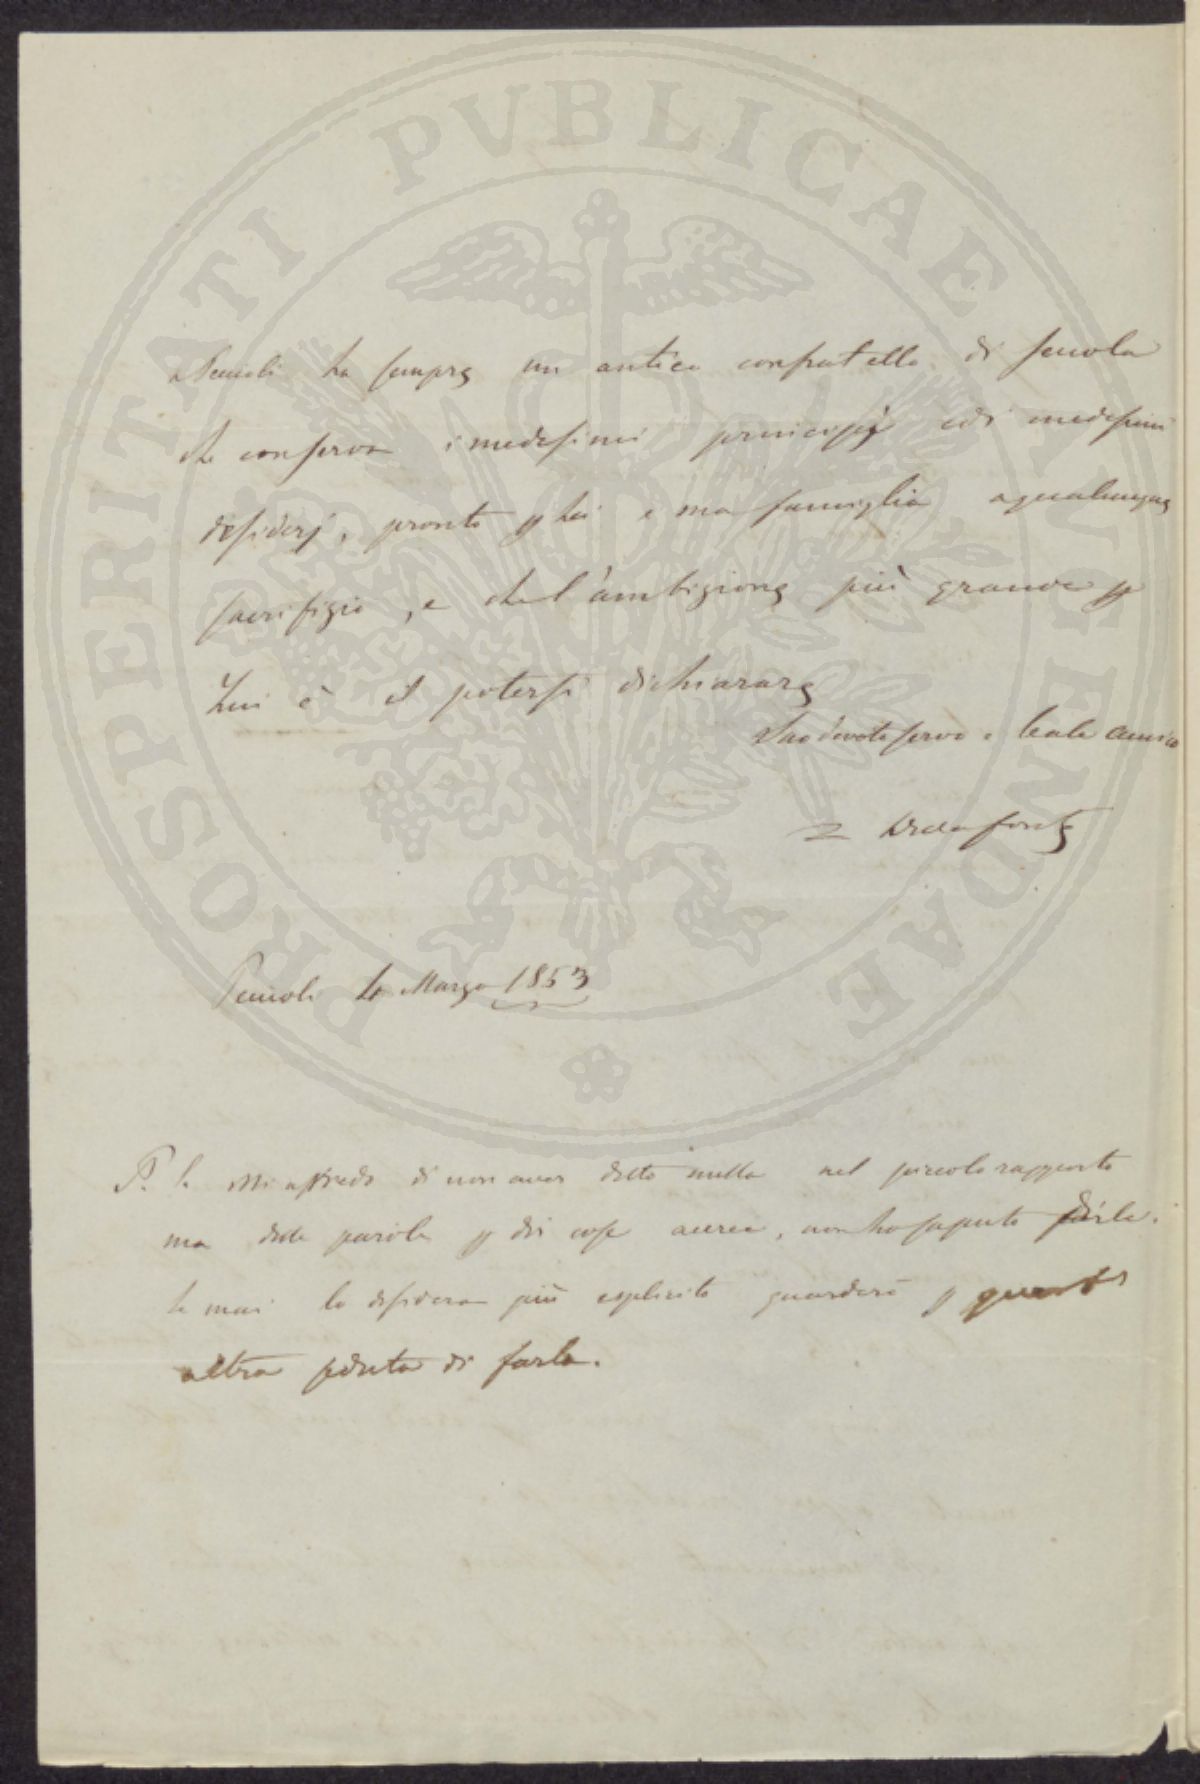 PROSPERITATI PUBLICAE AUGENDAE
Peccioli ha sempre un antico confratello di scuola
che conserva i medesimi principj ed i medesimi
desiderj, pronto p Lei e sua famiglia a qualunque
sacrifizio, e che l'ambizione più grande p
Lui è il potersi dichiarare
Suo devoto servo e leale amico
Peccioli 4 Marzo 1853
P. S. Mi avvedo di non aver detto nulla nel piccolo rapporto
ma dette parole p dir cose, non ho saputo dirle.
Se mai lo desidera più esplicito guarderò p quest'
altra seduta di farlo.